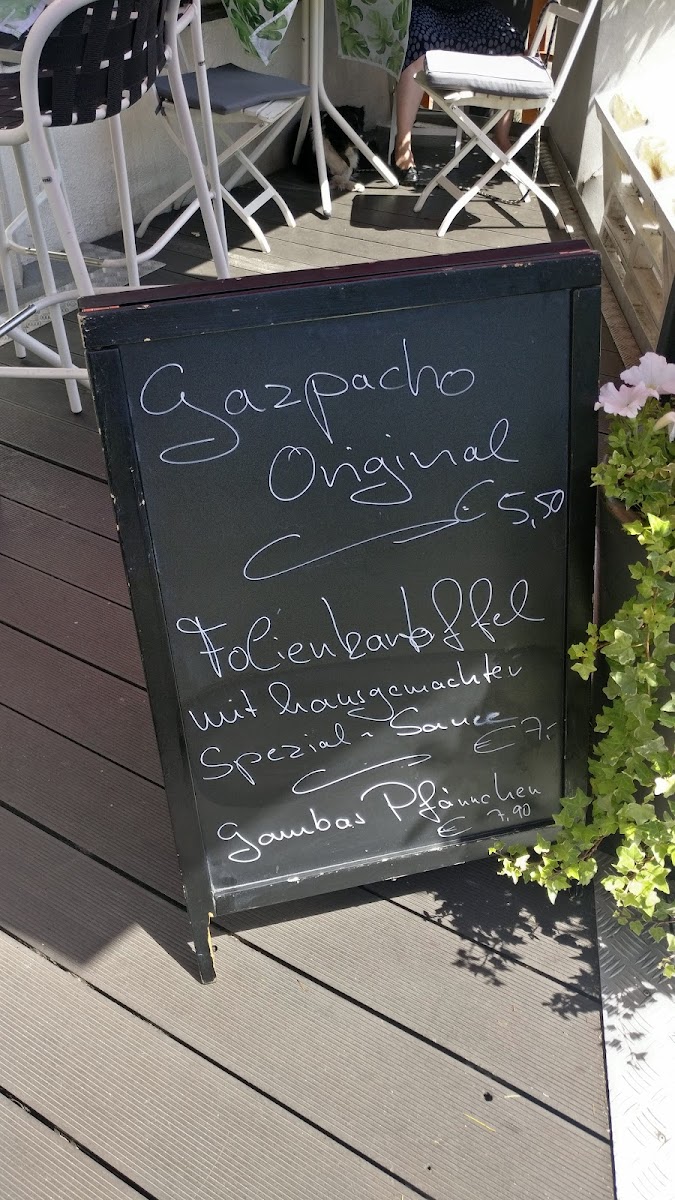 Gazpacho
Original
€ 5,50
Folienkartoffel
mit hausgemachter
Spezial-Sauce
€ 7,-
Gambas Pfännchen
€ 7.90